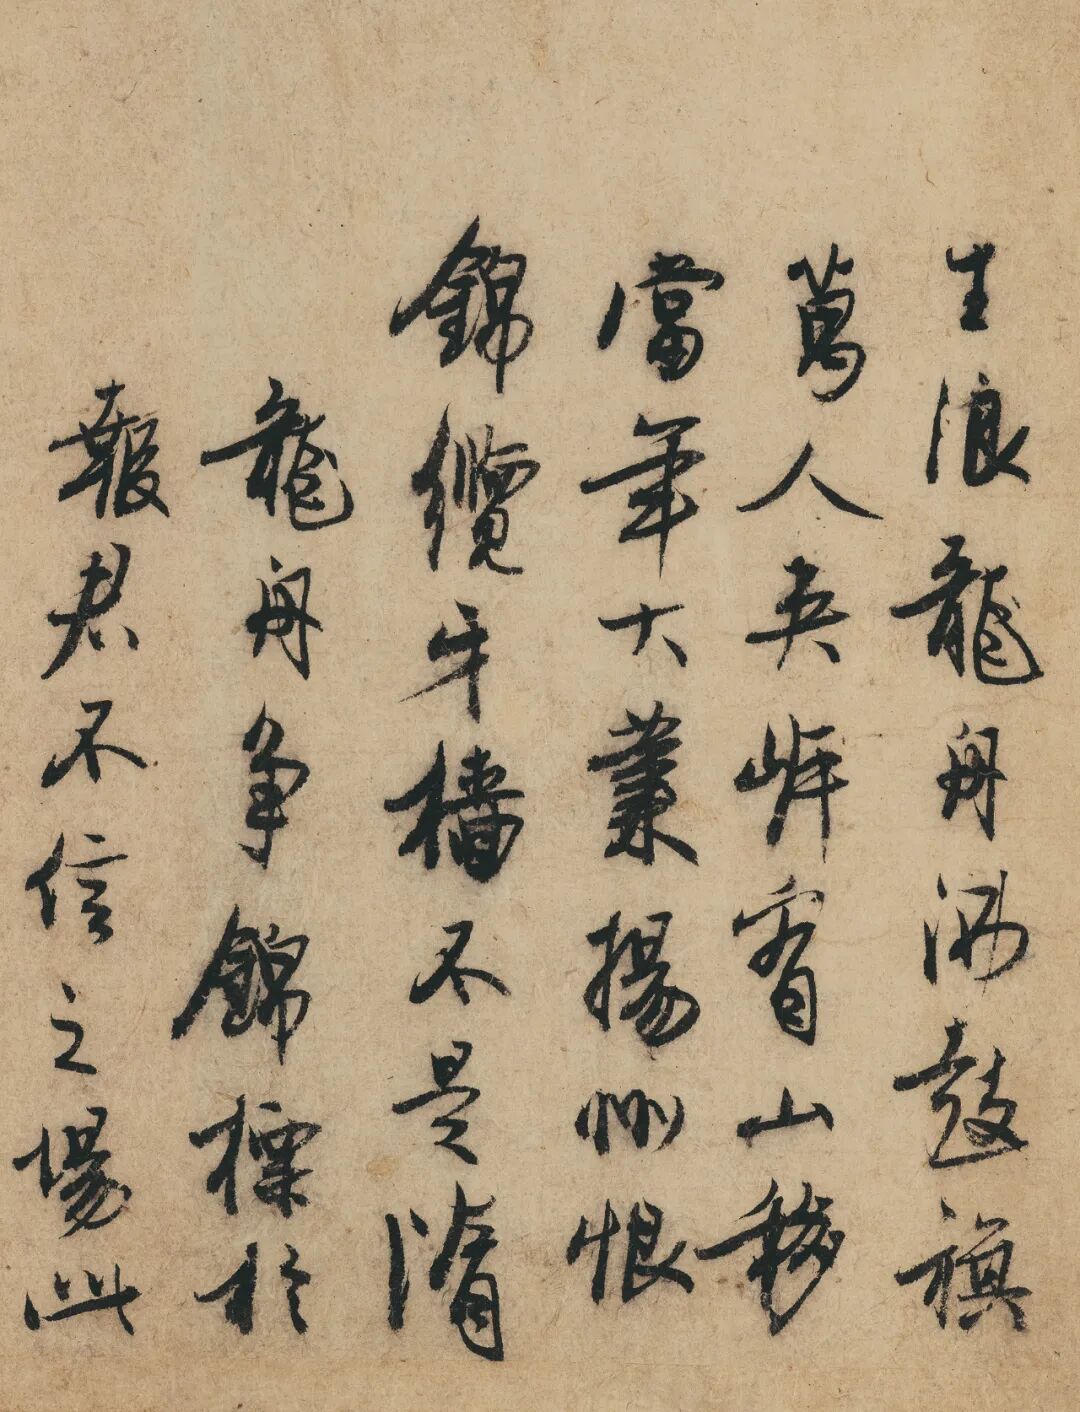 生浪龍舟鼓旗
萬人夾岸看山移
當年大業揚州恨
錦纜牙檣不是隋
龍舟爭錦標於
報君不信之場此